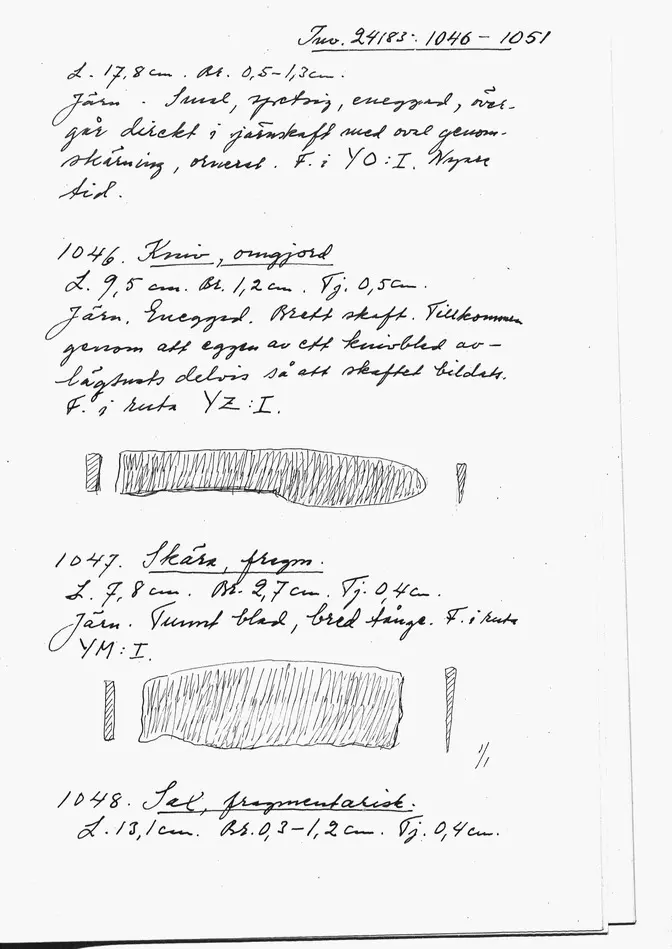 Inv. 24183: 1046 – 1051
L. 17,8 cm. Br. 0,5–1,3 cm.
Järn. Smal, spetsig, eneggad, över-
går direkt i järnskaft med oval genom-
skärning, ornerat. F. i YO:I. Nyare
tid.
1046. Kniv, omgjord
L. 9,5 cm. Br. 1,2 cm. Tj. 0,5 cm.
Järn. Eneggad. Brett skaft. Tillkommen
genom att eggen av ett knivblad av-
lägsnats delvis så att skaftet bildats.
F. i ruta YZ:I.
1047. Skära, fragm.
L. 7,8 cm. Br. 2,7 cm. Tj. 0,4 cm.
Järn. Tunnt blad, bred tånge. F. i ruta
YM:I.
1/1
1048. Sax, fragmentarisk.
L. 13,1 cm. Br. 0,3–1,2 cm. Tj. 0,4 cm.